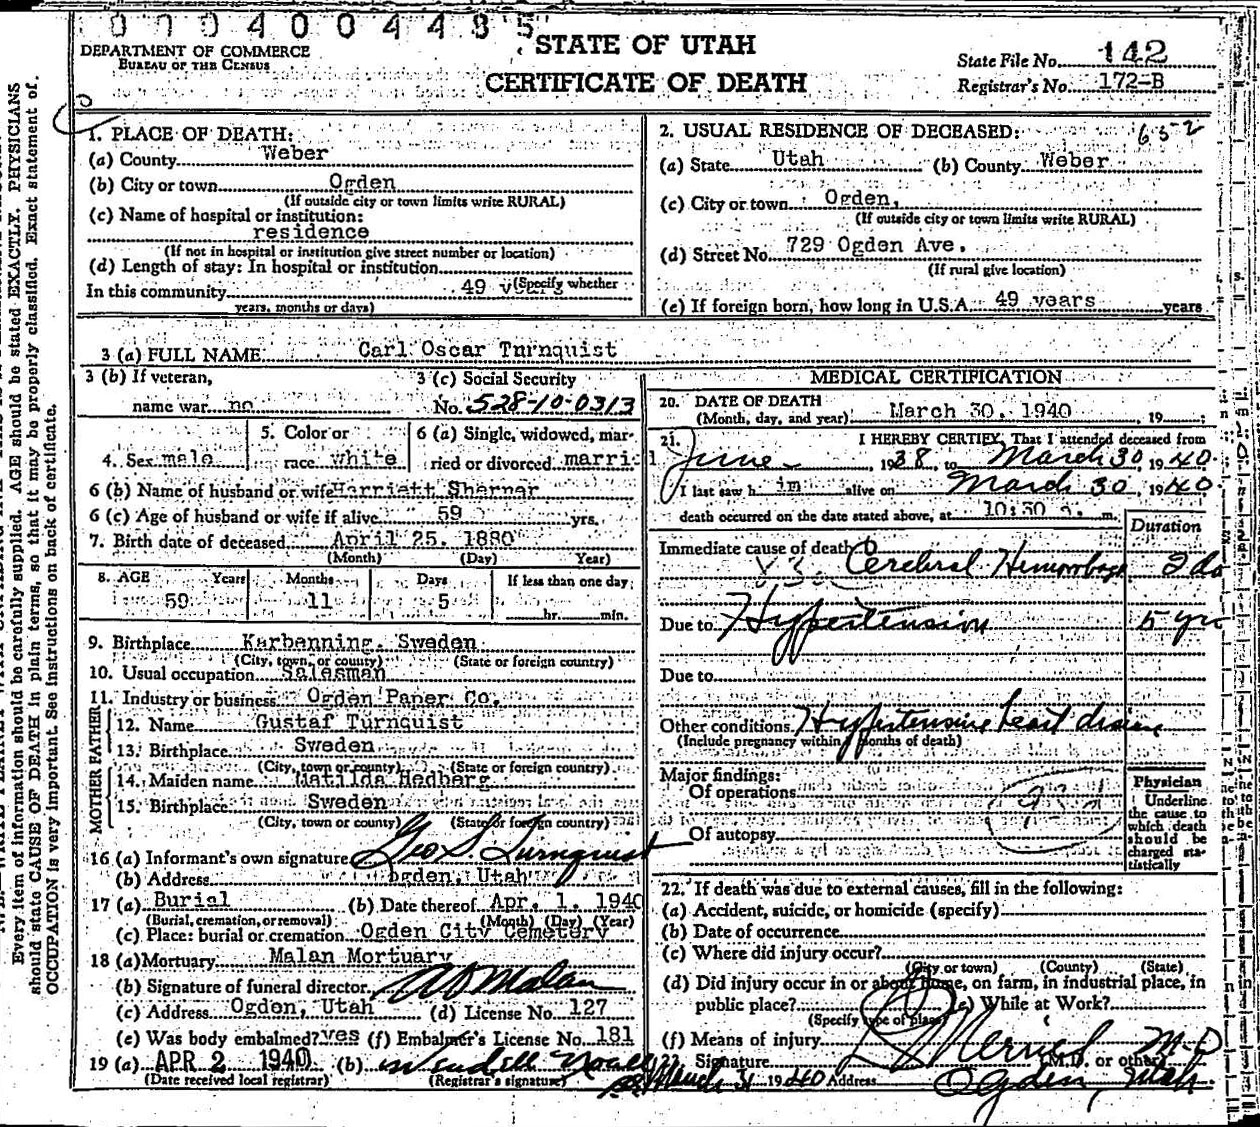 0704004485
STATE OF UTAH
CERTIFICATE OF DEATH
DEPARTMENT OF COMMERCE
BUREAU OF THE CENSUS
State File No. 142
Registrar's No. 172-B
1. PLACE OF DEATH:
(a) County Weber
(b) City or town Ogden
(If outside city or town limits write RURAL)
(c) Name of hospital or institution:
residence
(If not in hospital or institution give street number or location)
(d) Length of stay: In hospital or institution
(Specify whether
In this community 49 years
years, months or days)
2. USUAL RESIDENCE OF DECEASED: 652
(a) State Utah (b) County Weber
(c) City or town Ogden,
(If outside city or town limits write RURAL)
(d) Street No. 729 Ogden Ave.
(If rural give location)
(e) If foreign born, how long in U.S.A. 49 years years
3 (a) FULL NAME Carl Oscar Turnquist
3 (b) If veteran,
name war no
3 (c) Social Security
No. 528-10-0313
4. Sex male
5. Color or
race white
6 (a) Single, widowed, mar-
ried or divorced marri
6 (b) Name of husband or wife Harriett Sherner
6 (c) Age of husband or wife if alive 59 yrs.
7. Birth date of deceased April 25, 1880
(Month) (Day) Year)
8. AGE Years Months Days If less than one day
59 11 5 hr. min.
9. Birthplace Karbenning, Sweden
(City, town, or county) (State or foreign country)
10. Usual occupation Salesman
11. Industry or business Ogden Paper Co.
FATHER
12. Name Gustaf Turnquist
13. Birthplace Sweden
(City, town or county) (State or foreign country)
MOTHER
14. Maiden name Matilda Hedberg
15. Birthplace Sweden
(City, town or county) (State or foreign country)
16 (a) Informant's own signature Geo S. Turnquist
(b) Address Ogden, Utah
17 (a) Burial (b) Date thereof Apr. 1. 1940
(Burial, cremation, or removal) (Month) (Day) (Year)
(c) Place: burial or cremation Ogden City Cemetery
18 (a) Mortuary Malan Mortuary
(b) Signature of funeral director Malan
(c) Address Ogden, Utah (d) License No. 127
(e) Was body embalmed? yes (f) Embalmer's License No. 181
19 (a) APR 2 1940 (b) Wendell
(Date received local registrar) (Registrar's signature)
MEDICAL CERTIFICATION
20. DATE OF DEATH
(Month, day, and year) March 30, 1940, 19
21. I HEREBY CERTIFY, That I attended deceased from
June, 1938, to March 30, 1940.
I last saw him alive on March 30, 1940.
death occurred on the date stated above, at 10:30 a. m.
Duration
Immediate cause of death
Cerebral Hemorrhage 2 da
Due to Hypertension 5 yrs
Due to
Other conditions Hypertensive heart disease
(Include pregnancy within months of death)
Major findings:
Of operations
Of autopsy
Physician
Underline
the cause to
which death
should be
charged sta-
tistically
22. If death was due to external causes, fill in the following:
(a) Accident, suicide, or homicide (specify)
(b) Date of occurrence
(c) Where did injury occur?
(City or town) (County) (State)
(d) Did injury occur in or about home, on farm, in industrial place, in
public place? (e) While at Work?
(Specify type of place)
(f) Means of injury
23. Signature Merrill M.D.
(M.D. or other)
March 31 1940 Address Ogden, Utah
Every item of information should be carefully supplied. AGE should be stated EXACTLY. PHYSICIANS
should state CAUSE OF DEATH in plain terms, so that it may be properly classified. Exact statement of
OCCUPATION is very important. See instructions on back of certificate.